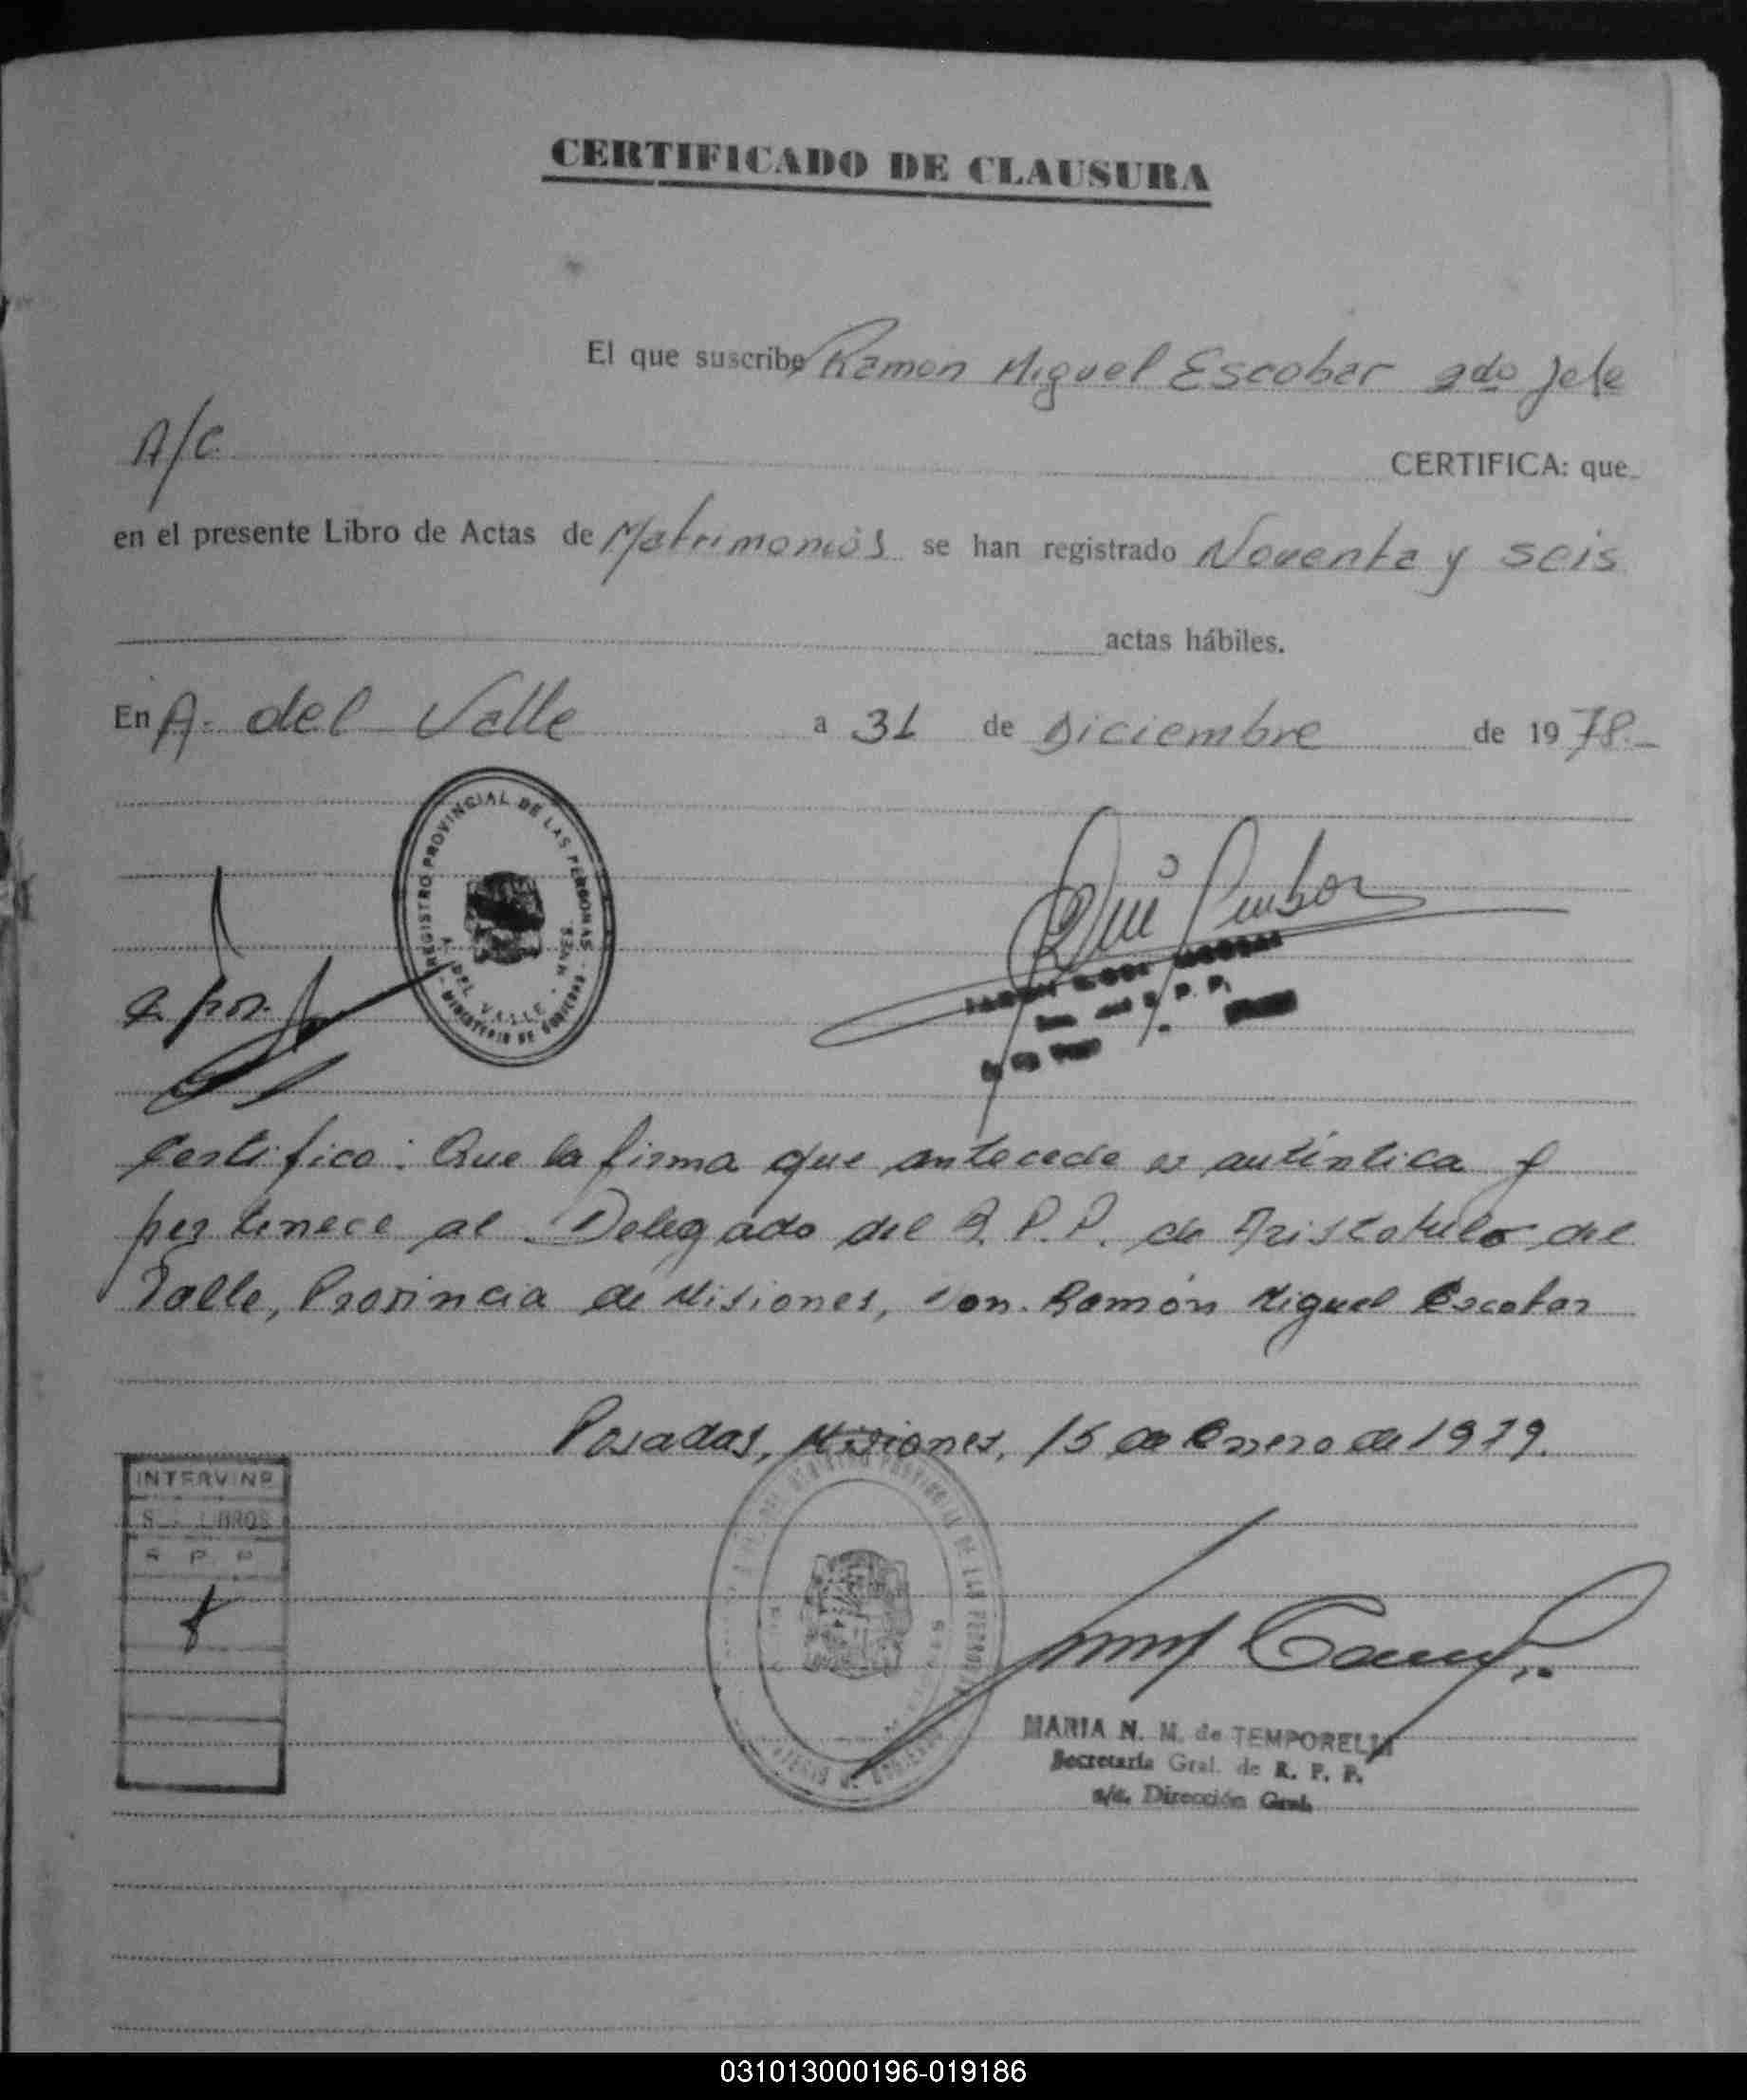 CERTIFICADO DE CLAUSURA
El que suscribe Ramon Miguel Escobar 2do Jefe
A/C. CERTIFICA: que
en el presente Libro de Actas de Matrimonios se han registrado Noventa y seis
actas hábiles.
En A. del Valle a 31 de Diciembre de 1978.-
REGISTRO PROVINCIAL DE LAS PERSONAS
MINISTERIO DE GOBIERNO
A. DEL VALLE - MNES.
Certifico: Que la firma que antecede es auténtica y
pertenece al Delegado del R.P.P. de Aristóbulo del
Valle, Provincia de Misiones, Don. Ramón Miguel Escobar
Posadas, Misiones, 15 de Enero de 1979.
INTERVINO
S. LIBROS
R P P
MARIA N. M. de TEMPORELLI
Secretaria Gral. de R. P. P.
a/c. Dirección Gral.
031013000196-019186